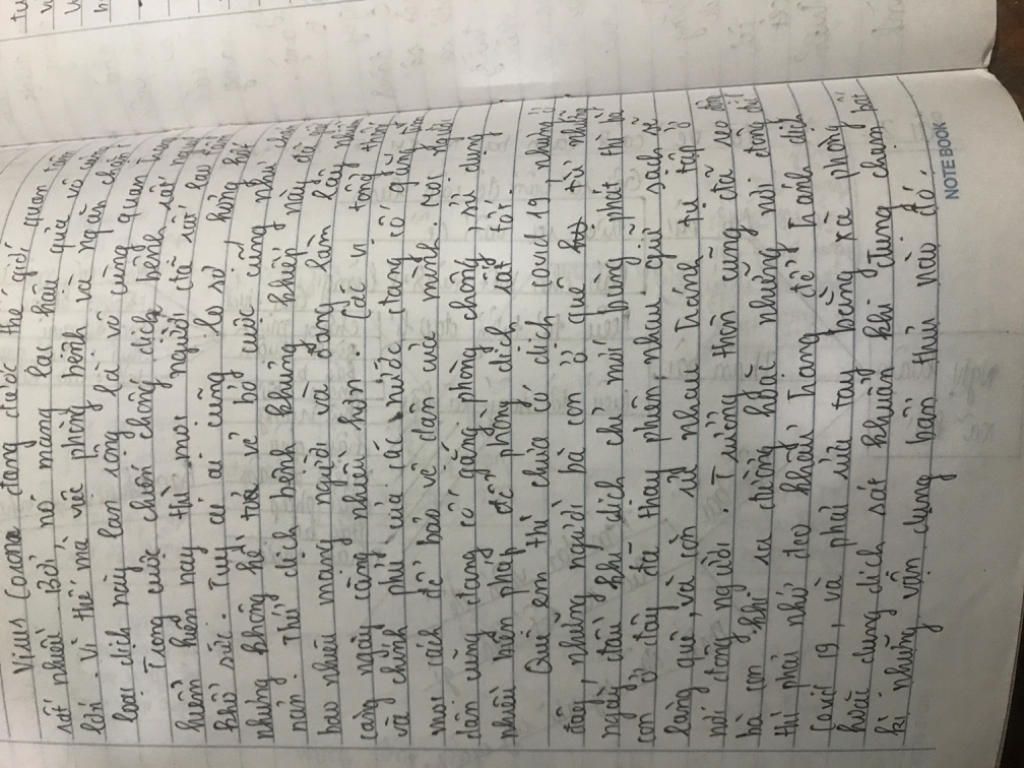 Virus Corona đang được thế giới quan tâm
rất nhiều. Bởi nó mang lại hậu quả vô cùng
lớn. Vì thế mà việc phòng bệnh và ngăn chặn
loại dịch này lan rộng là vô cùng quan trọng
Trong cuộc chiến chống dịch bệnh rất nguy
hiểm hiện nay thì mọi người đã rất lao tâm
khổ sức. Tuy ai ai cũng lo sợ, hoảng hốt
nhưng không hề từ bỏ cuộc
nan. Thế dịch bệnh khủng khiếp này đã
bao nhiêu mạng người và đang làm lây nhiễm
càng ngày càng nhiều hơn. Các vị tổng thống
và chính phủ của các nước đang cố gắng tìm
mọi cách để bảo vệ dân của mình. Mọi người
dân cũng đang cố gắng phòng chống, sử dụng
nhiều biện pháp để phòng dịch rất tốt.
Quê em thì chưa có dịch covid 19, nhưng ở
đây, những người bà con ở quê từ những
ngày đầu khi dịch chỉ mới bùng phát thì bà
con ở đây đã thay phiên nhau giữ sạch sẽ
làng quê, và còn rủ nhau tránh tụ tập ở
nơi đông người. Tưởng thôn cũng đã
bà con khi ra đường hoặc những nơi đông
thì phải nhớ đeo khẩu trang để tránh dịch
Covid 19, và phải rửa tay bằng xà phòng
hoặc dung dịch sát khuẩn khi đụng chạm
kì những vận dụng bẩn thỉu nào đó.
NOTE BOOK